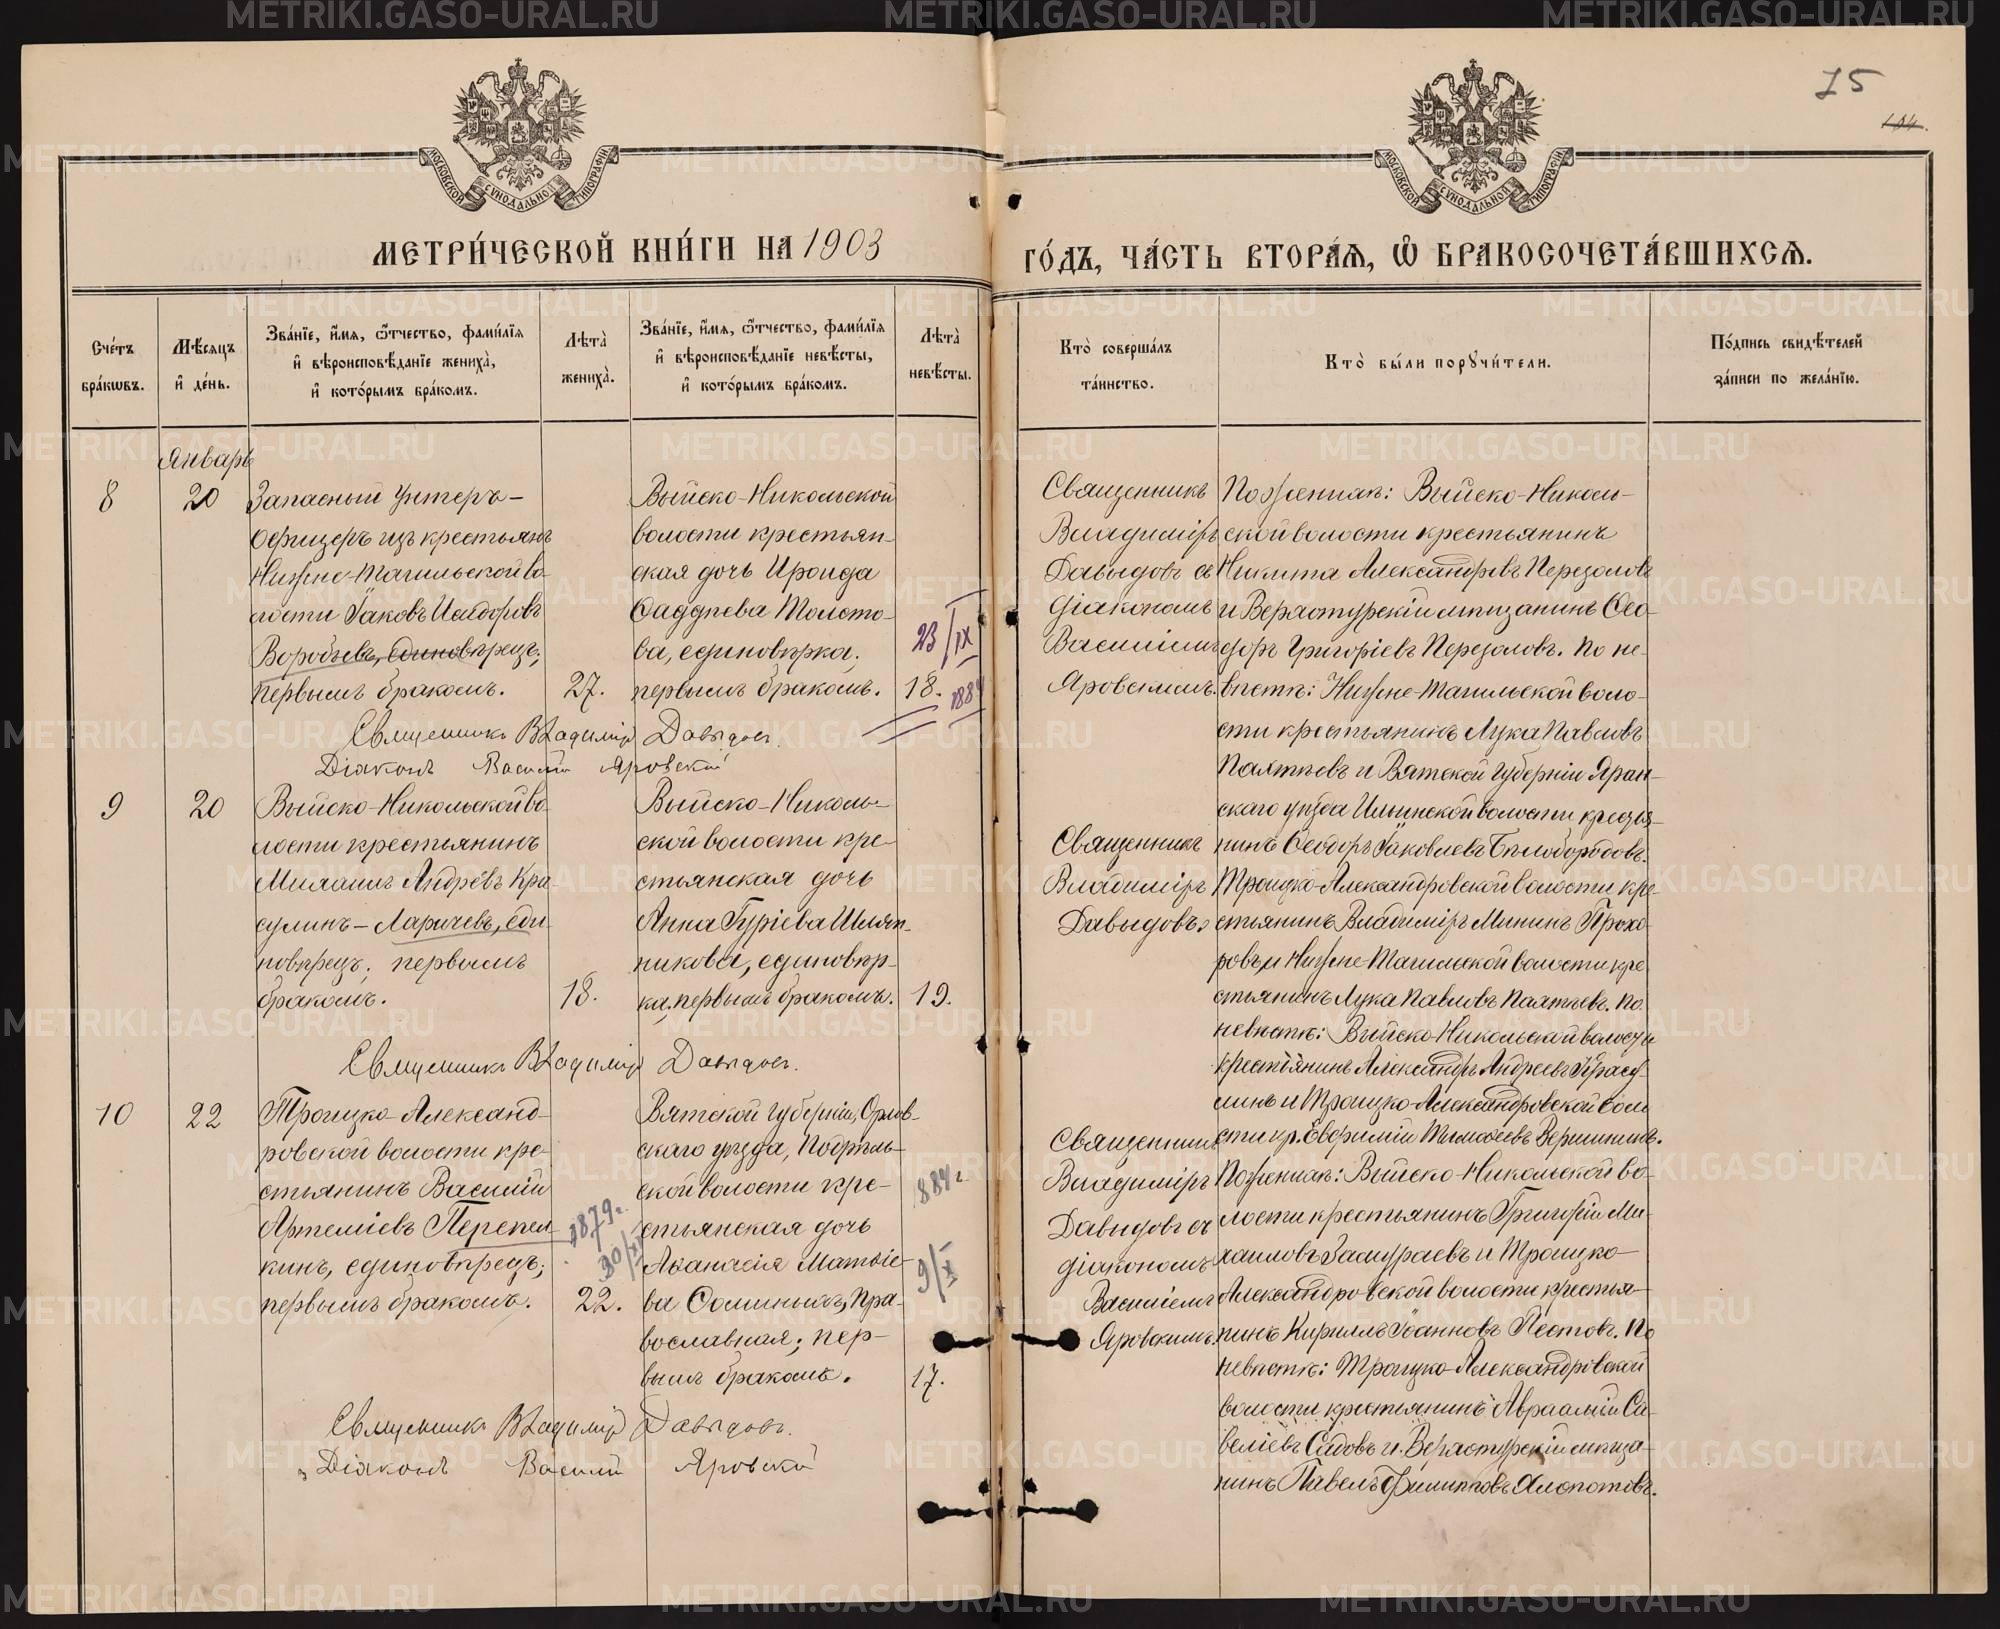 75
МОСКОВСКОЙ СѴНОДАЛЬНОЙ ТИПОГРАФІИ
МОСКОВСКОЙ СѴНОДАЛЬНОЙ ТИПОГРАФІИ
МЕТРИ́ЧЕСКОЙ КНИ́ГИ НА 1903
ГО́ДЪ, ЧА́СТЬ ВТОРА́Я, Ѿ БРАКОСОЧЕТА́ВШИХСЯ.
Сче́тъ
бра́ковъ.
Мѣ́сяцъ
и де́нь.
Зва́нїе, и́мя, о́тчество, фами́лїя
и вѣроисповѣ́данїе жениха̀,
и кото́рымъ бра́комъ.
Лѣта̀
жениха̀.
Зва́нїе, и́мя, о́тчество, фами́лїя
и вѣроисповѣ́данїе невѣ́сты,
и кото́рымъ бра́комъ.
Лѣта̀
невѣ́сты.
Кто̀ соверша́лъ
та́инство.
Кто̀ бы́ли порꙋчи́тели.
По́дпись свидѣ́телей
за́писи по жела́нїю.
Январь
8
20
Запасный унтеръ-
офицеръ изъ крестьянъ
Нижне-Тагильской во-
лости Іаковъ Исидоровъ
Воробьевъ, единовѣрецъ;
первымъ бракомъ.
27.
Выйско-Никольской
волости крестьян-
ская дочь Ироида
Фаддѣева Толсто-
ва, единовѣрка;
первымъ бракомъ.
23/IX
18.
1884
Священникъ
Владиміръ
Давыдовъ съ
діакономъ
Василіемъ
Яровскимъ.
По женихѣ: Выйско-Николь-
ской волости крестьянинъ
Никита Александровъ Перезоловъ
и Верхотурскій мѣщанинъ Ѳео-
доръ Григоріевъ Перезоловъ. По не-
вѣстѣ: Нижне-Тагильской воло-
сти крестьянинъ Лука Павловъ
Палтѣевъ и Вятской губерніи Яран-
скаго уѣзда Ильинской волости кресть-
янинъ Ѳеодоръ Іаковлевъ Бѣлобородовъ.
Священникъ Владиміръ Давыдовъ.
Діаконъ Василій Яровскій
9
20
Выйско-Никольской во-
лости крестьянинъ
Михаилъ Андреевъ Кра-
сулинъ-Ларичевъ, еди-
новѣрецъ; первымъ
бракомъ.
18.
Выйско-Николь-
ской волости кре-
стьянская дочь
Анна Гуріева Шляп-
никова, единовѣр-
ка, первымъ бракомъ.
19.
Священникъ
Владиміръ
Давыдовъ
Троицко-Александровской волости кре-
стьянинъ Владиміръ Мининъ Прохо-
ровъ и Нижне-Тагильской волости кре-
стьянинъ Лука Павловъ Палтѣевъ. По
невѣстѣ: Выйско-Никольской волости
крестьянинъ Александръ Андреевъ Красу-
линъ и Троицко-Александровской воло-
сти кр. Евфимій Тимофеевъ Вершининъ.
Священникъ Владиміръ Давыдовъ.
10
22
Троицко-Александ-
ровской волости кре-
стьянинъ Василій
Артеміевъ Перепел-
кинъ, единовѣрецъ;
первымъ бракомъ.
1879 г.
22.
Вятской губерніи, Орлов-
скаго уѣзда, Подрѣль-
ской волости кре-
стьянская дочь
Аѳанасія Матѳіе-
ва Соминыхъ, пра-
вославная; пер-
вымъ бракомъ.
884 г.
9/X
17.
Священникъ
Владиміръ
Давыдовъ съ
діакономъ
Василіемъ
Яровскимъ.
По женихѣ: Выйско-Никольской во-
лости крестьянинъ Григорій Ми-
хаиловъ и Троицко-
Александровской волости крестья-
нинъ Кириллъ Іоанновъ Пестовъ. По
невѣстѣ: Троицко-Александровской
волости крестьянинъ Авраамій Са-
веліевъ Садовъ и Верхотурскій мѣща-
нинъ Павелъ Филипповъ Хлопотовъ.
Священникъ Владиміръ Давыдовъ.
Діаконъ Василій Яровскій
METRIKI.GASO-URAL.RU